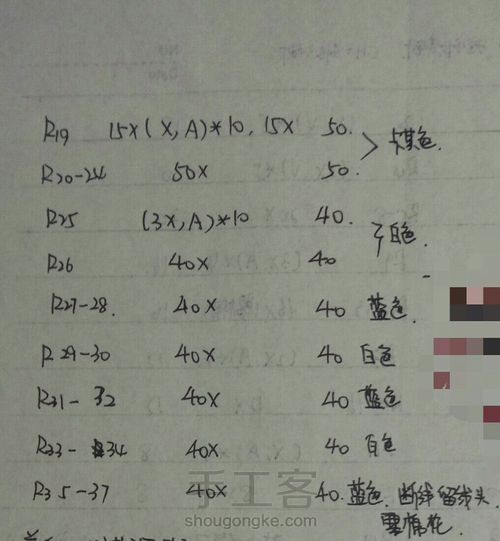 R19 15X(X,A)*10,15X 50. > 卡其色.
R20-24 50X 50.
R25 (3X,A)*10 40. > 白色.
R26 40X 40
R27-28. 40X 40 蓝色.
R29-30 40X 40 白色
R31-32 40X 40 蓝色
R33-34 40X 40 白色
R35-37 40X 40. 蓝色. 断线留线头,
塞棉花.
手工客
shougongke.com